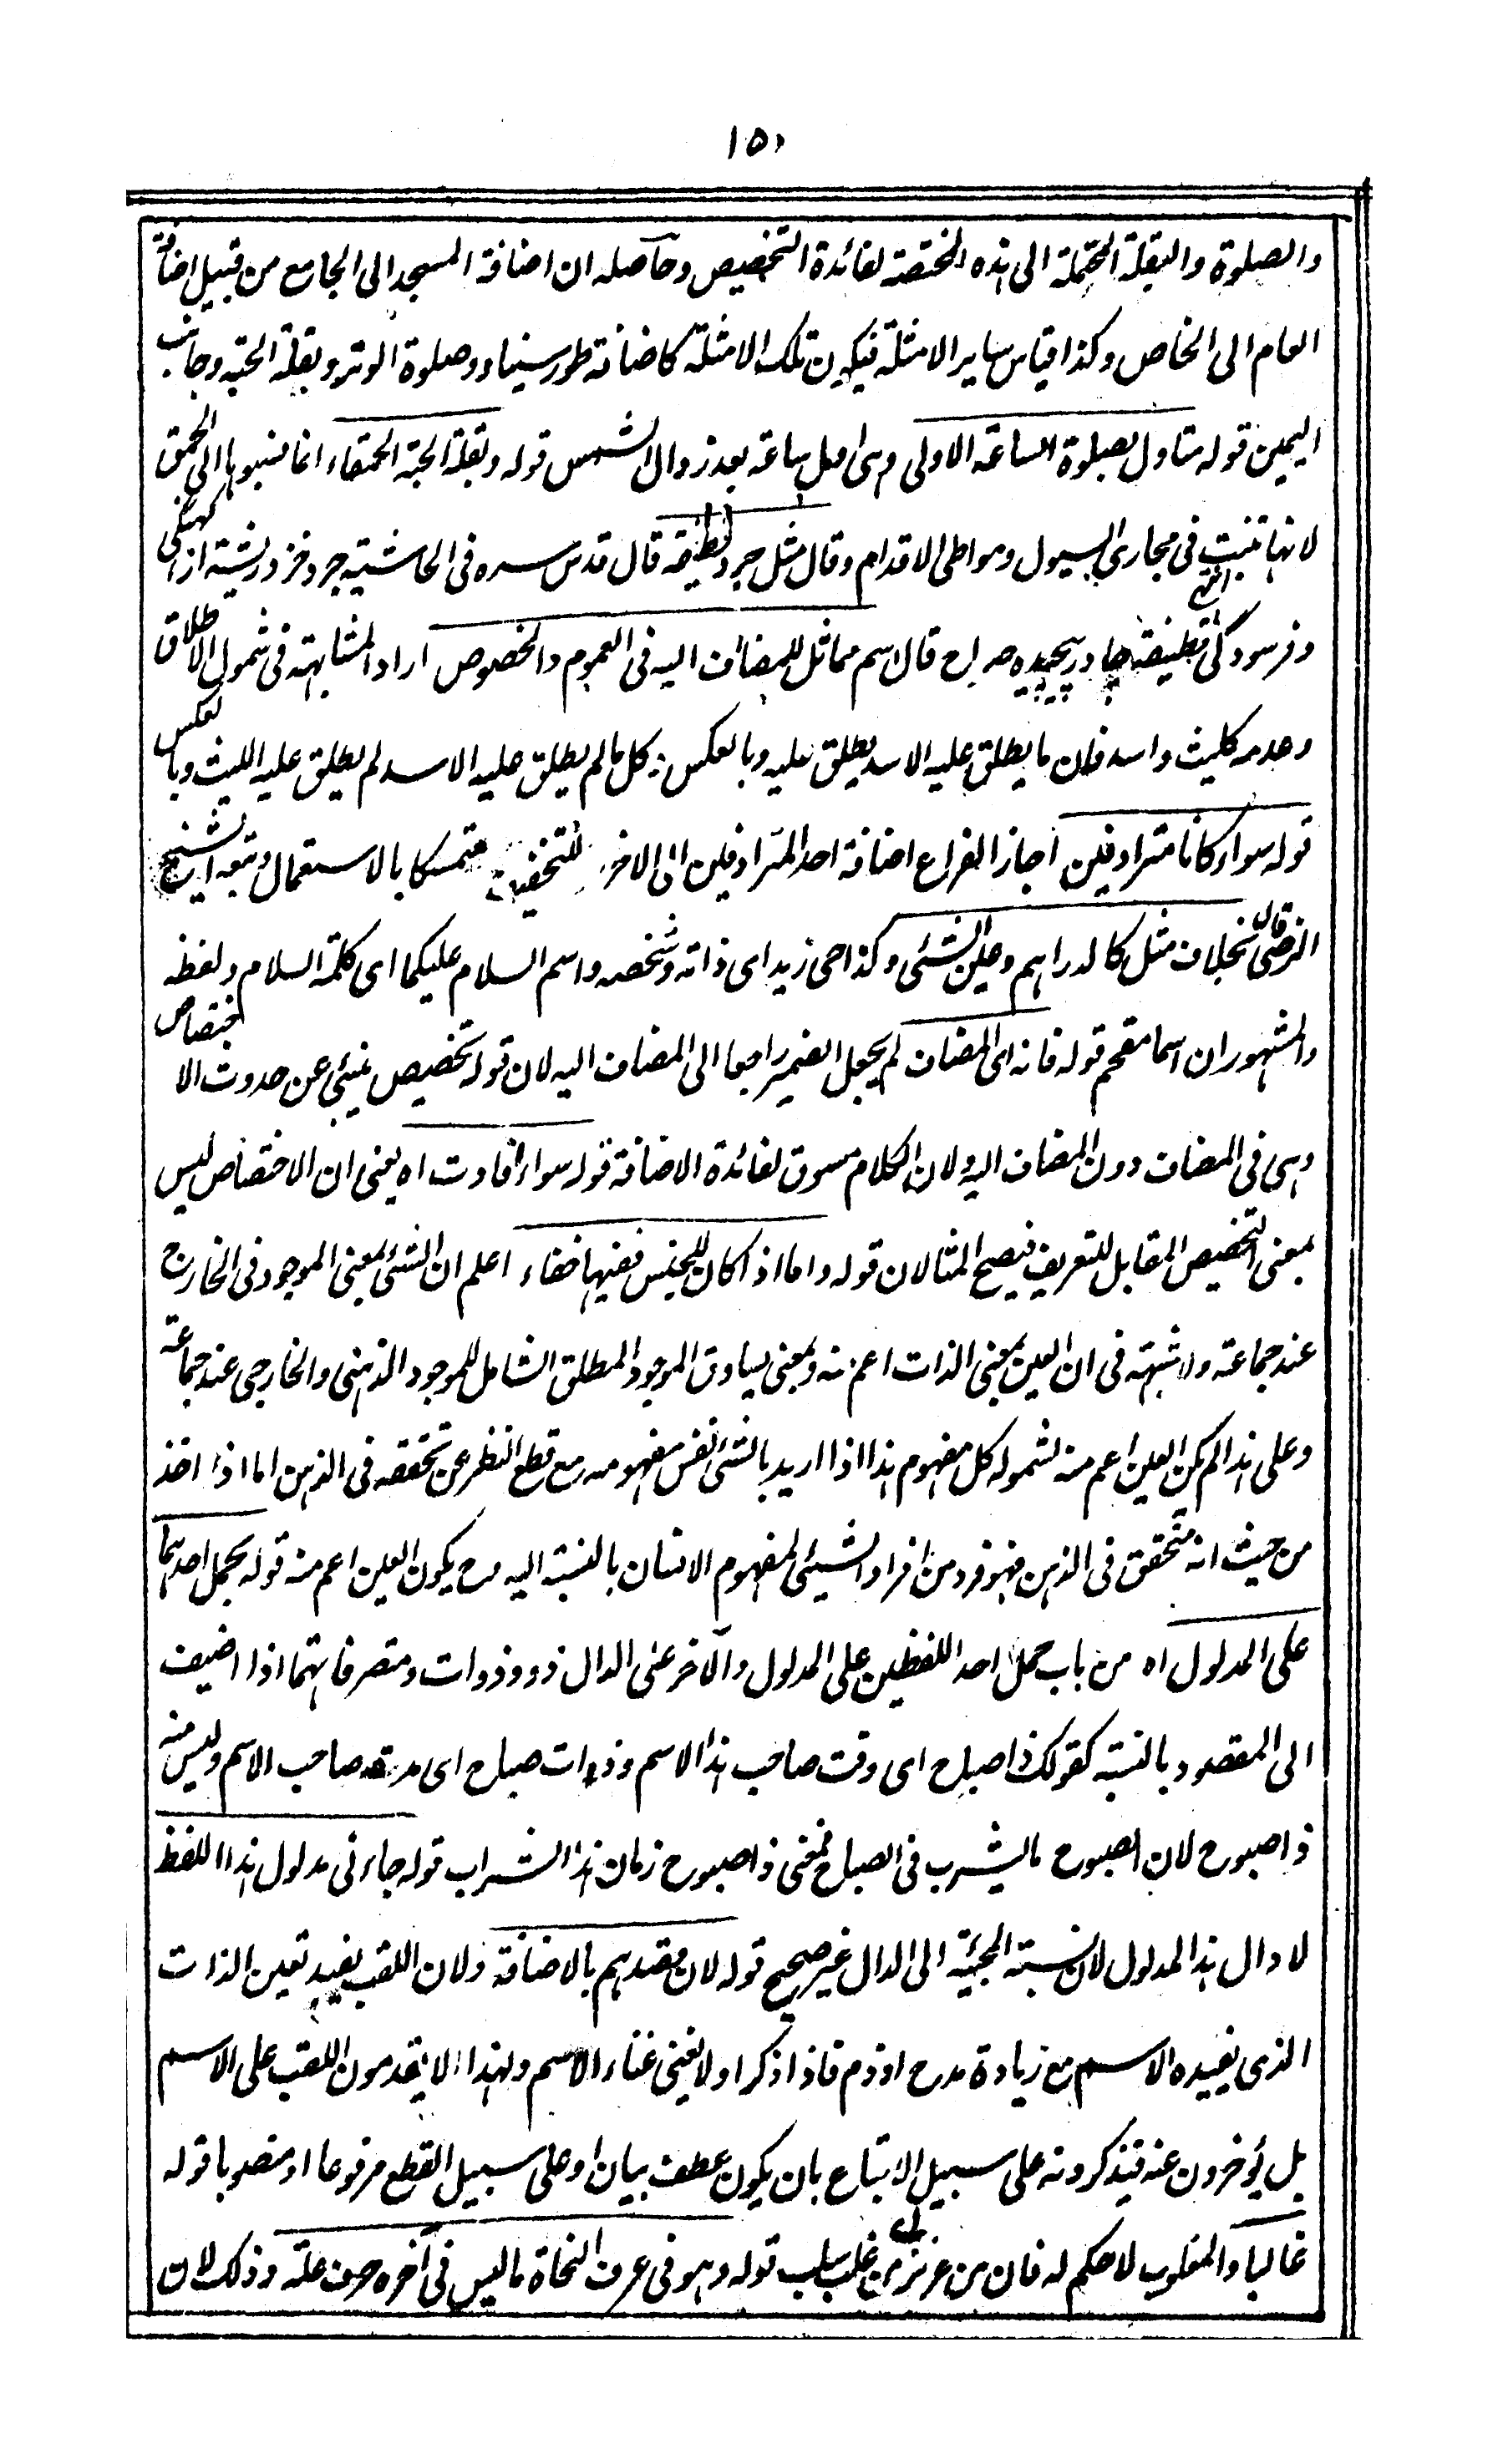 ١٥٠
والصلوة والبقلة المحتملة الى هذه المختصة لفائدة التخصيص وحاصله ان اضافة المسجد الى الجامع من قبيل اضافة
العام الى الخاص وكذا قياس ساير الامثلة فيكون تلك الامثلة كاضافة طور سيناء وصلوة الوتر وبقلة الحبة وجانب
اليمين قوله متاول بصلوة الساعة الاولى وهى اول ساعة بعد زوال الشمس قوله وبقلة الحبة الحمقاء انما نسبوها الى الحمق
لانها تنبت فى مجارى السيول ومواطى الاقدام وقال مثل جرد قطيفة قال قدس سره فى الحاشية جرد خز در يشتة از كهنگى
وفرسودگى قطيفة چادر پيچيده صراح قال اسم مماثل للمضاف اليه فى العموم والخصوص اراد المشابهة فى شمول الاطلاق
وعدمه كليث واسد فان ما يطلق عليه الاسد يطلق عليه وبالعكس وكل مالم يطلق عليه الاسد لم يطلق عليه الليث وبالعكس
قوله سواء كانا مترادفين اجاز الفراء اضافة احد المترادفين الى الاخر للتخفيف متمسكا بالاستعمال وتبعه الشيخ
الرضى قال بخلاف مثل كل الدراهم وعين الشئى وكذا حى زيد اى ذاته وشخصه واسم السلام عليكما اى كلمة السلام ولفظه
والمشهور ان اسما مقحم قوله فانه اى المضاف لم يجعل الضمير راجعا الى المضاف اليه لان قوله تخصيص ينبئى عن حدوث الاختصاص
وهى فى المضاف دون المضاف اليه ولان الكلام مسوق لفائدة الاضافة قوله سواء افادت اه يعنى ان الاختصاص ليس
بمعنى التخصيص المقابل للتعريف فيصح المثالان قوله واما اذا كان للجنس ففيها خفاء اعلم ان الشئى بمعنى الموجود فى الخارج
عند جماعة ولا شبهة فى ان العين بمعنى الذات اعم منه وبمعنى يساوق الموجود المطلق الشامل للموجود الذهنى والخارجى عند جماعة
وعلى هذا لم يكن العين اعم منه لشموله كل مفهوم هذا اذا اريد بالشئى نفس مفهومه مع قطع النظر عن تحققه فى الذهن اما اذا اخذ
من حيث انه متحقق فى الذهن فهو فرد من افراد الشيئى لمفهوم الانسان بالنسبة اليه وح يكون العين اعم منه قوله بحمل احدهما
على المدلول اه من باب حمل احد اللفظين على المدلول والآخر على الدال ذو وذوات ومتصرفاتهما اذا اضيف
الى المقصود بالنسبة كقولك ذا صباح اى وقت صاحب هذا الاسم وذات صباح اى مدة صاحب الاسم وليس منه
ذا صبوح لان الصبوح ما يشرب فى الصباح فمعنى ذا صبوح زمان هذا الشراب قوله جاءنى مدلول هذا اللفظ
لا دال هذا المدلول لان نسبة المجيئة الى الدال غير صحيح قوله لان مقصدهم بالاضافة ولان اللقب يفيد تعين الذات
الذى يفيده الاسم مع زيادة مدح او ذم فاذا ذكر اولا يغنى غناء الاسم ولهذا لا يقدمون اللقب على الاسم
بل يؤخرون عنه فيذكرونه على سبيل الاتباع بان يكون عطف بيان او على سبيل القطع مرفوعا او منصوبا قوله
غالبا والمغلوب لا حكم له فان من عز بز اى من غلب سلب قوله وهو فى عرف النحاة ماليس فى آخره حرف علة وذلك لان